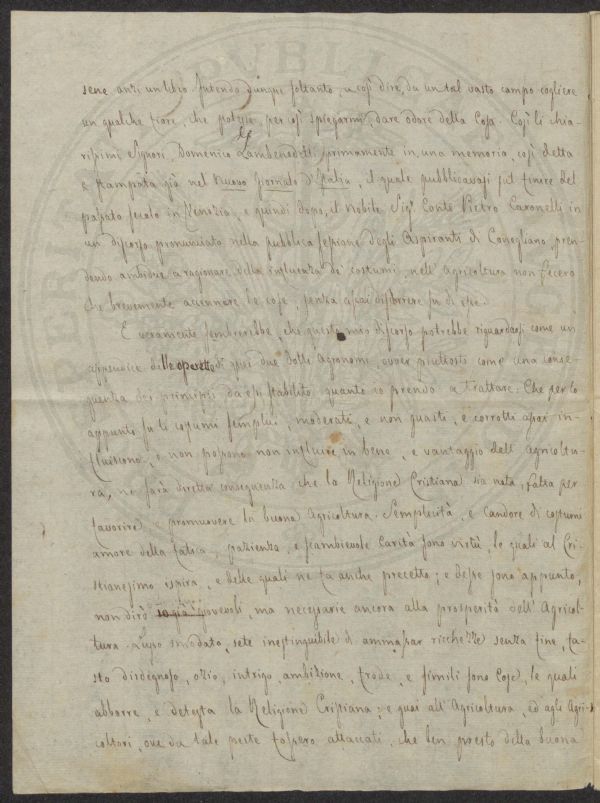 sene anzi un libro. Intendo dunque soltanto, a così dire, da un tal vasto campo cogliere
un qualche fiore, che possa, per così spiegarmi, dare odore della Cosa. Così li chia-
rissimi Signori Domenico Lambenedetti primamente in una memoria, così detta
e stampata già nel Nuovo Giornale d'Italia, il quale pubblicavasi sul finire del
passato secolo in Venezia, e quindi dopo, il Nobile Sig. Conte Pietro Caronelli in
un discorso pronunciato nella pubblica sessione degli Aspiranti di Conegliano, pren-
dendo ambidue a ragionare della influenza de' costumi nell' Agricoltura non fecero
che brevemente accennare le cose, senza assai discorrere su di esse.
E veramente sembrerebbe, che questo mio discorso potrebbe riguardarsi come un
appendice delle operette di quei due dotti Agronomi, ovver piuttosto come una conse-
guenza dei principj da essi stabiliti quanto io prendo a trattare. Che se lo
appunto su li costumi semplici, moderati, e non guasti, e corrotti assai in-
fluiscono, e non possono non influire in bene, e vantaggio dell' Agricoltu-
ra, ne sarà diretta conseguenza che la Religione Cristiana sia nata, fatta per
favorire, e promuovere la buona Agricoltura. Semplicità, e candore di costumi
amore della fatica, pazienza, e scambievole carità sono virtù, le quali al Cri-
stianesimo espira, e delle quali ne fa anche precetto; e desse sono appunto,
non dirò giovevoli, ma necessarie ancora alla prosperità dell' Agricol-
tura. Lusso smodato, sete inestinguibile di ammassar ricchezze senza fine, fa-
sto disdegnoso, ozio, intrigo, ambizione, frode, e simili sono cose, le quali
abborre, e detesta la Religione Cristiana; e guai all' Agricoltura, ed agli Agri-
coltori, ove da tale peste fossero attaccati, che ben presto della buona